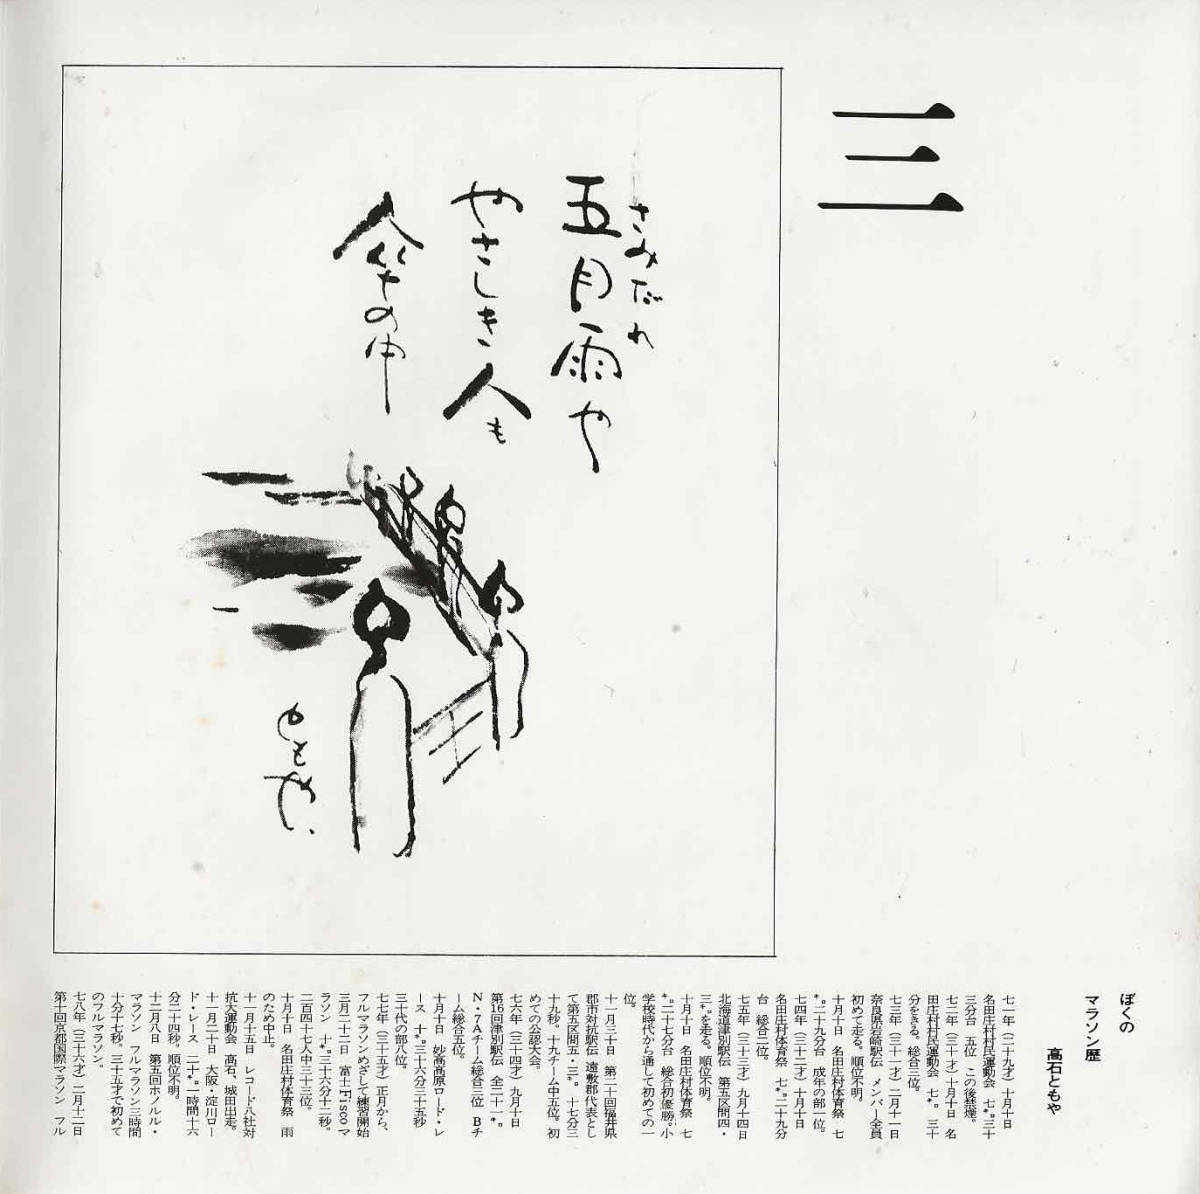 三
さみだれ
五月雨や
やさしき人も
傘の中
ともや
ぼくの
マラソン歴
高石ともや
七一年(二十九才)十月十日
名田庄村村民運動会 七㌔三十
三分台 五位 この後禁煙。
七二年(三十才)十月十日 名
田庄村村民運動会 七㌔ 三十
分をきる。総合三位。
七三年(三十一才)二月十一日
奈良県岩崎駅伝 メンバー全員
初めて走る。順位不明。
十月十日 名田庄村体育祭 七
㌔二十九分台 成年の部一位。
七四年(三十二才)十月十日
名田庄村体育祭 七㌔二十九分
台 総合二位。
七五年(三十三才)九月十四日
北海道津別駅伝 第五区間四・
三㌔を走る。順位不明。
十月十日 名田庄村体育祭 七
㌔二十七分台 総合初優勝。小
学校時代から通して初めての一
位。
十一月三十日 第二十回福井県
郡市対抗駅伝 遠敷郡代表とし
て第五区間五・三㌔ 十七分三
十九秒。十九チーム中五位。初
めての公認大会。
七六年(三十四才)九月十日
第16回津別駅伝 全三十一㌔
N・7Aチーム総合三位 Bチ
ーム総合五位。
十月十日 妙高高原ロード・レ
ース 十㌔三十六分三十五秒
三十代の部八位。
七七年(三十五才)正月から、
フルマラソンめざして練習開始
三月二十二日 富士Fiscoマ
ラソン 十㌔三十六分十二秒。
二百四十七人中三十三位。
十月十日 名田庄村体育祭 雨
のため中止。
十一月十五日 レコード八社対
抗大運動会 高石、城田出走。
十一月二十日 大阪・淀川ロー
ド・レース 二十㌔一時間十六
分二十四秒。順位不明。
十二月八日 第五回ホノルル・
マラソン フルマラソン三時間
十分十七秒。三十五才で初めて
のフルマラソン。
七八年(三十六才)二月十二日
第十回京都国際マラソン フル